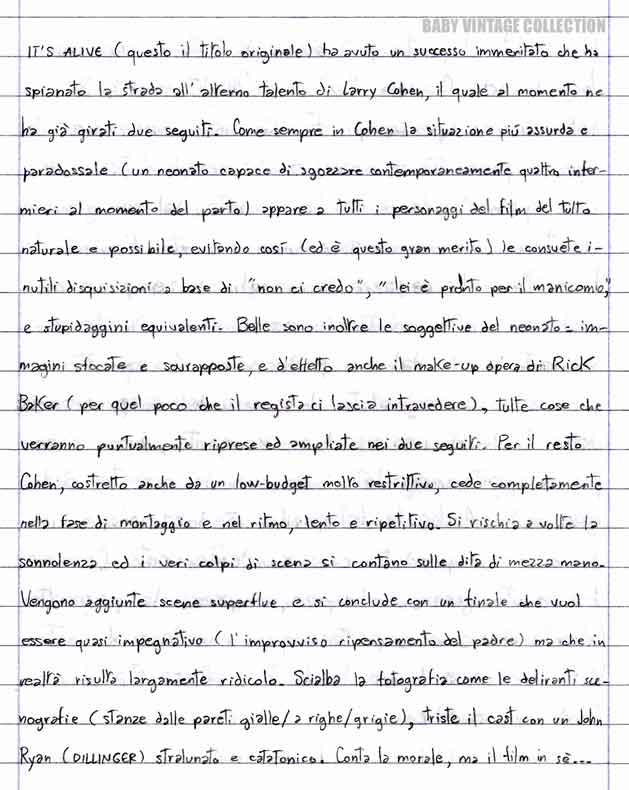 BABY VINTAGE COLLECTION
IT'S ALIVE (questo il titolo originale) ha avuto un successo immeritato che ha
spianato la strada all'alterno talento di Larry Cohen, il quale al momento ne
ha già girati due seguiti. Come sempre in Cohen la situazione più assurda e
paradossale (un neonato capace di sgozzare contemporaneamente quattro infer-
mieri al momento del parto) appare a tutti i personaggi del film del tutto
naturale e possibile, evitando così (ed è questo gran merito) le consuete i-
nutili disquisizioni a base di "non ci credo", "lei è pronto per il manicomio,"
e stupidaggini equivalenti. Belle sono inoltre le soggettive del neonato = im-
magini sfocate e sovrapposte, e d'effetto anche il make-up opera di RICK
BAKER (per quel poco che il regista ci lascia intravedere), tutte cose che
verranno puntualmente riprese ed ampliate nei due seguiti. Per il resto
Cohen, costretto anche da un low-budget molto restrittivo, cede completamente
nella fase di montaggio e nel ritmo, lento e ripetitivo. Si rischia a volte la
sonnolenza ed i veri colpi di scena si contano sulle dita di mezza mano.
Vengono aggiunte scene superflue e si conclude con un finale che vuol
essere quasi impegnativo (l'improvviso ripensamento del padre) ma che in
realtà risulta largamente ridicolo. Scialba la fotografia come le deliranti sce-
nografie (stanze dalle pareti gialle/a righe/grigie), triste il cast con un John
Ryan (DILLINGER) stralunato e catatonico. Conta la morale, ma il film in sè...